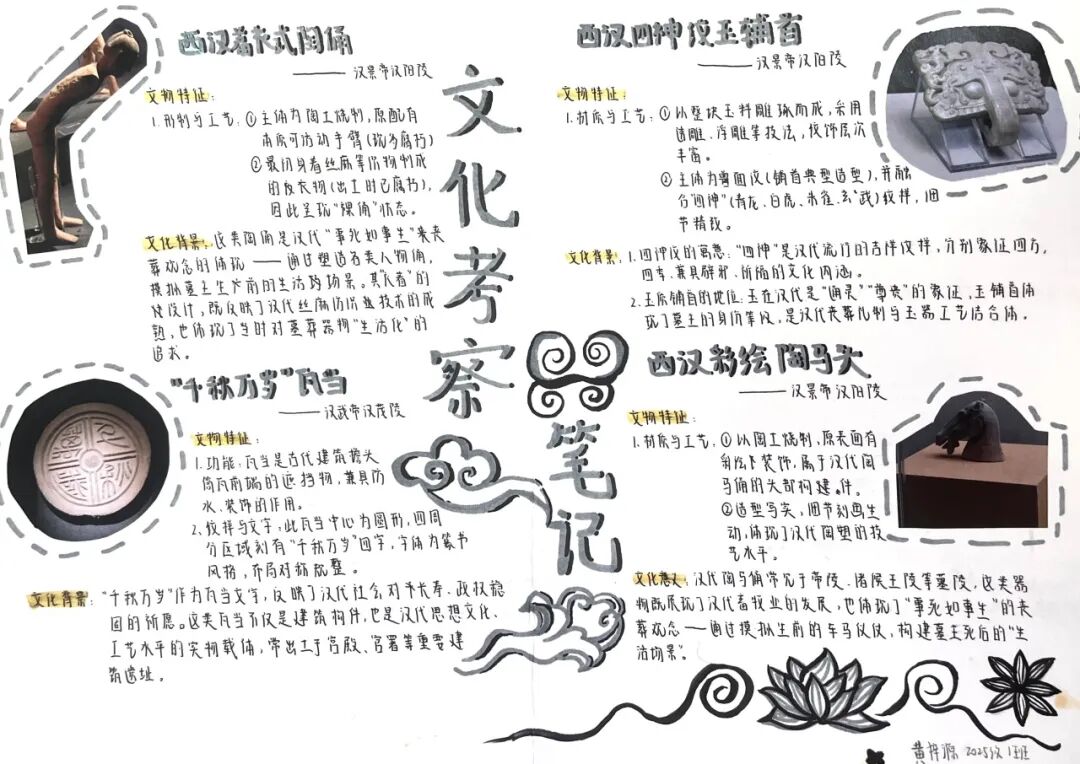 文化考察笔记
西汉着衣式陶俑
—— 汉景帝汉阳陵
文物特征：
1. 形制与工艺：①主体为陶土烧制，原配有
木质可活动手臂（现多腐朽）
②最初身着丝麻等织物制成
的皮衣物（出土时已腐朽），
因此呈现“裸俑”状态。
文化背景：这类陶俑是汉代“事死如事生”丧
葬观念的体现——通过塑造各类人物俑，
模拟墓主生前的生活场景。其“着衣”的
设计，既反映了汉代丝麻纺织业技术的成
熟，也体现了当时对墓葬器物“生活化”的
追求。
“千秋万岁”瓦当
—— 汉武帝汉茂陵
文物特征：
1. 功能：瓦当是古代建筑檐头
筒瓦前端的遮挡物，兼具防
水、装饰的作用。
2. 纹样与文字：此瓦当中心为圆形，四周
分区域刻有“千秋万岁”四字，字体为篆书
风格，布局对称规整。
文化背景：“千秋万岁”作为瓦当文字，反映了汉代社会对长寿、政权稳
固的祈愿。这类瓦当不仅是建筑构件，也是汉代思想文化、
工艺水平的实物载体，常出土于宫殿、官署等重要建
筑遗址。
西汉四神纹玉铺首
—— 汉景帝汉阳陵
文物特征：
1. 材质与工艺：①以整块玉料雕琢而成，采用
透雕、浮雕等技法，纹饰层次
丰富。
②主体为兽面纹（铺首典型造型），并融
合“四神”（青龙、白虎、朱雀、玄武）纹样，细
节精致。
文化背景：1. 四神纹的寓意：“四神”是汉代流行的吉祥纹样，分别象征四方，
四季，兼具辟邪、祈福的文化内涵。
2. 玉质铺首的地位：玉在汉代是“通灵”“尊贵”的象征，玉铺首体
现了墓主的身份等级，是汉代丧葬礼制与玉器工艺结合体。
西汉彩绘陶马头
—— 汉景帝汉阳陵
文物特征：
1. 材质与工艺：①以陶土烧制，原表面有
彩绘装饰，属于汉代陶
马俑的头部构件。
②造型写实，细节刻画生
动，体现了汉代陶塑的技
艺水平。
文化意义：汉代陶马俑常见于帝陵、诸侯王陵等墓陵，这类器
物既展现了汉代畜牧业的发展，也体现了“事死如事生”的丧
葬观念——通过模拟生前的车马仪仗，构建墓主死后的“生
活场景”。
黄梓源 2025级1班